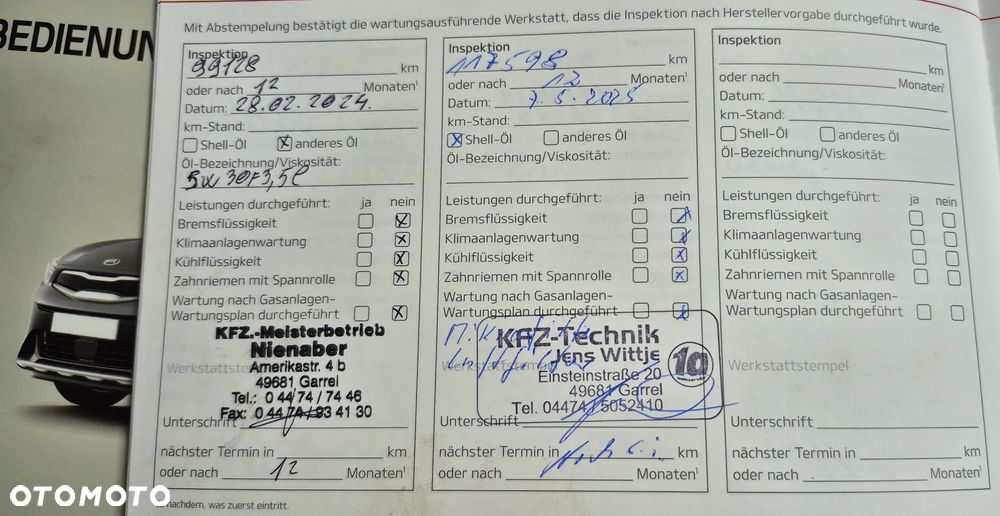 BEDIENUN
Mit Abstempelung bestätigt die wartungsausführende Werkstatt, dass die Inspektion nach Herstellervorgabe durchgeführt wurde.
Inspektion
99128 km
oder nach 12 Monaten¹
Datum: 28.02.2024.
km-Stand:
Shell-Öl x anderes Öl
Öl-Bezeichnung/Viskosität:
5W30 F3,5l
Leistungen durchgeführt: ja nein
Bremsflüssigkeit x
Klimaanlagenwartung x
Kühlflüssigkeit x
Zahnriemen mit Spannrolle x
Wartung nach Gasanlagen-
Wartungsplan durchgeführt x
KFZ.-Meisterbetrieb
Nienaber
Amerikastr. 4 b
Werkstattstempel
49681 Garrel
Tel.: 0 44 74 / 74 46
Fax: 0 44 74 / 93 41 30
Unterschrift
nächster Termin in km
oder nach 12 Monaten¹
Inspektion
117598 km
oder nach 12 Monaten¹
Datum: 7.5.2025
km-Stand:
x Shell-Öl anderes Öl
Öl-Bezeichnung/Viskosität:
Leistungen durchgeführt: ja nein
Bremsflüssigkeit x
Klimaanlagenwartung x
Kühlflüssigkeit x
Zahnriemen mit Spannrolle x
Wartung nach Gasanlagen-
Wartungsplan durchgeführt x
KFZ-Technik
Jens Wittje
1a
Werkstattstempel
Einsteinstraße 20
49681 Garrel
Tel. 04474 / 5052410
Unterschrift
nächster Termin in km
oder nach Monaten¹
Inspektion
km
oder nach Monaten¹
Datum:
km-Stand:
Shell-Öl anderes Öl
Öl-Bezeichnung/Viskosität:
Leistungen durchgeführt: ja nein
Bremsflüssigkeit
Klimaanlagenwartung
Kühlflüssigkeit
Zahnriemen mit Spannrolle
Wartung nach Gasanlagen-
Wartungsplan durchgeführt
Werkstattstempel
Unterschrift
nächster Termin in km
oder nach Monaten¹
nachdem, was zuerst eintritt.
OTOMOTO